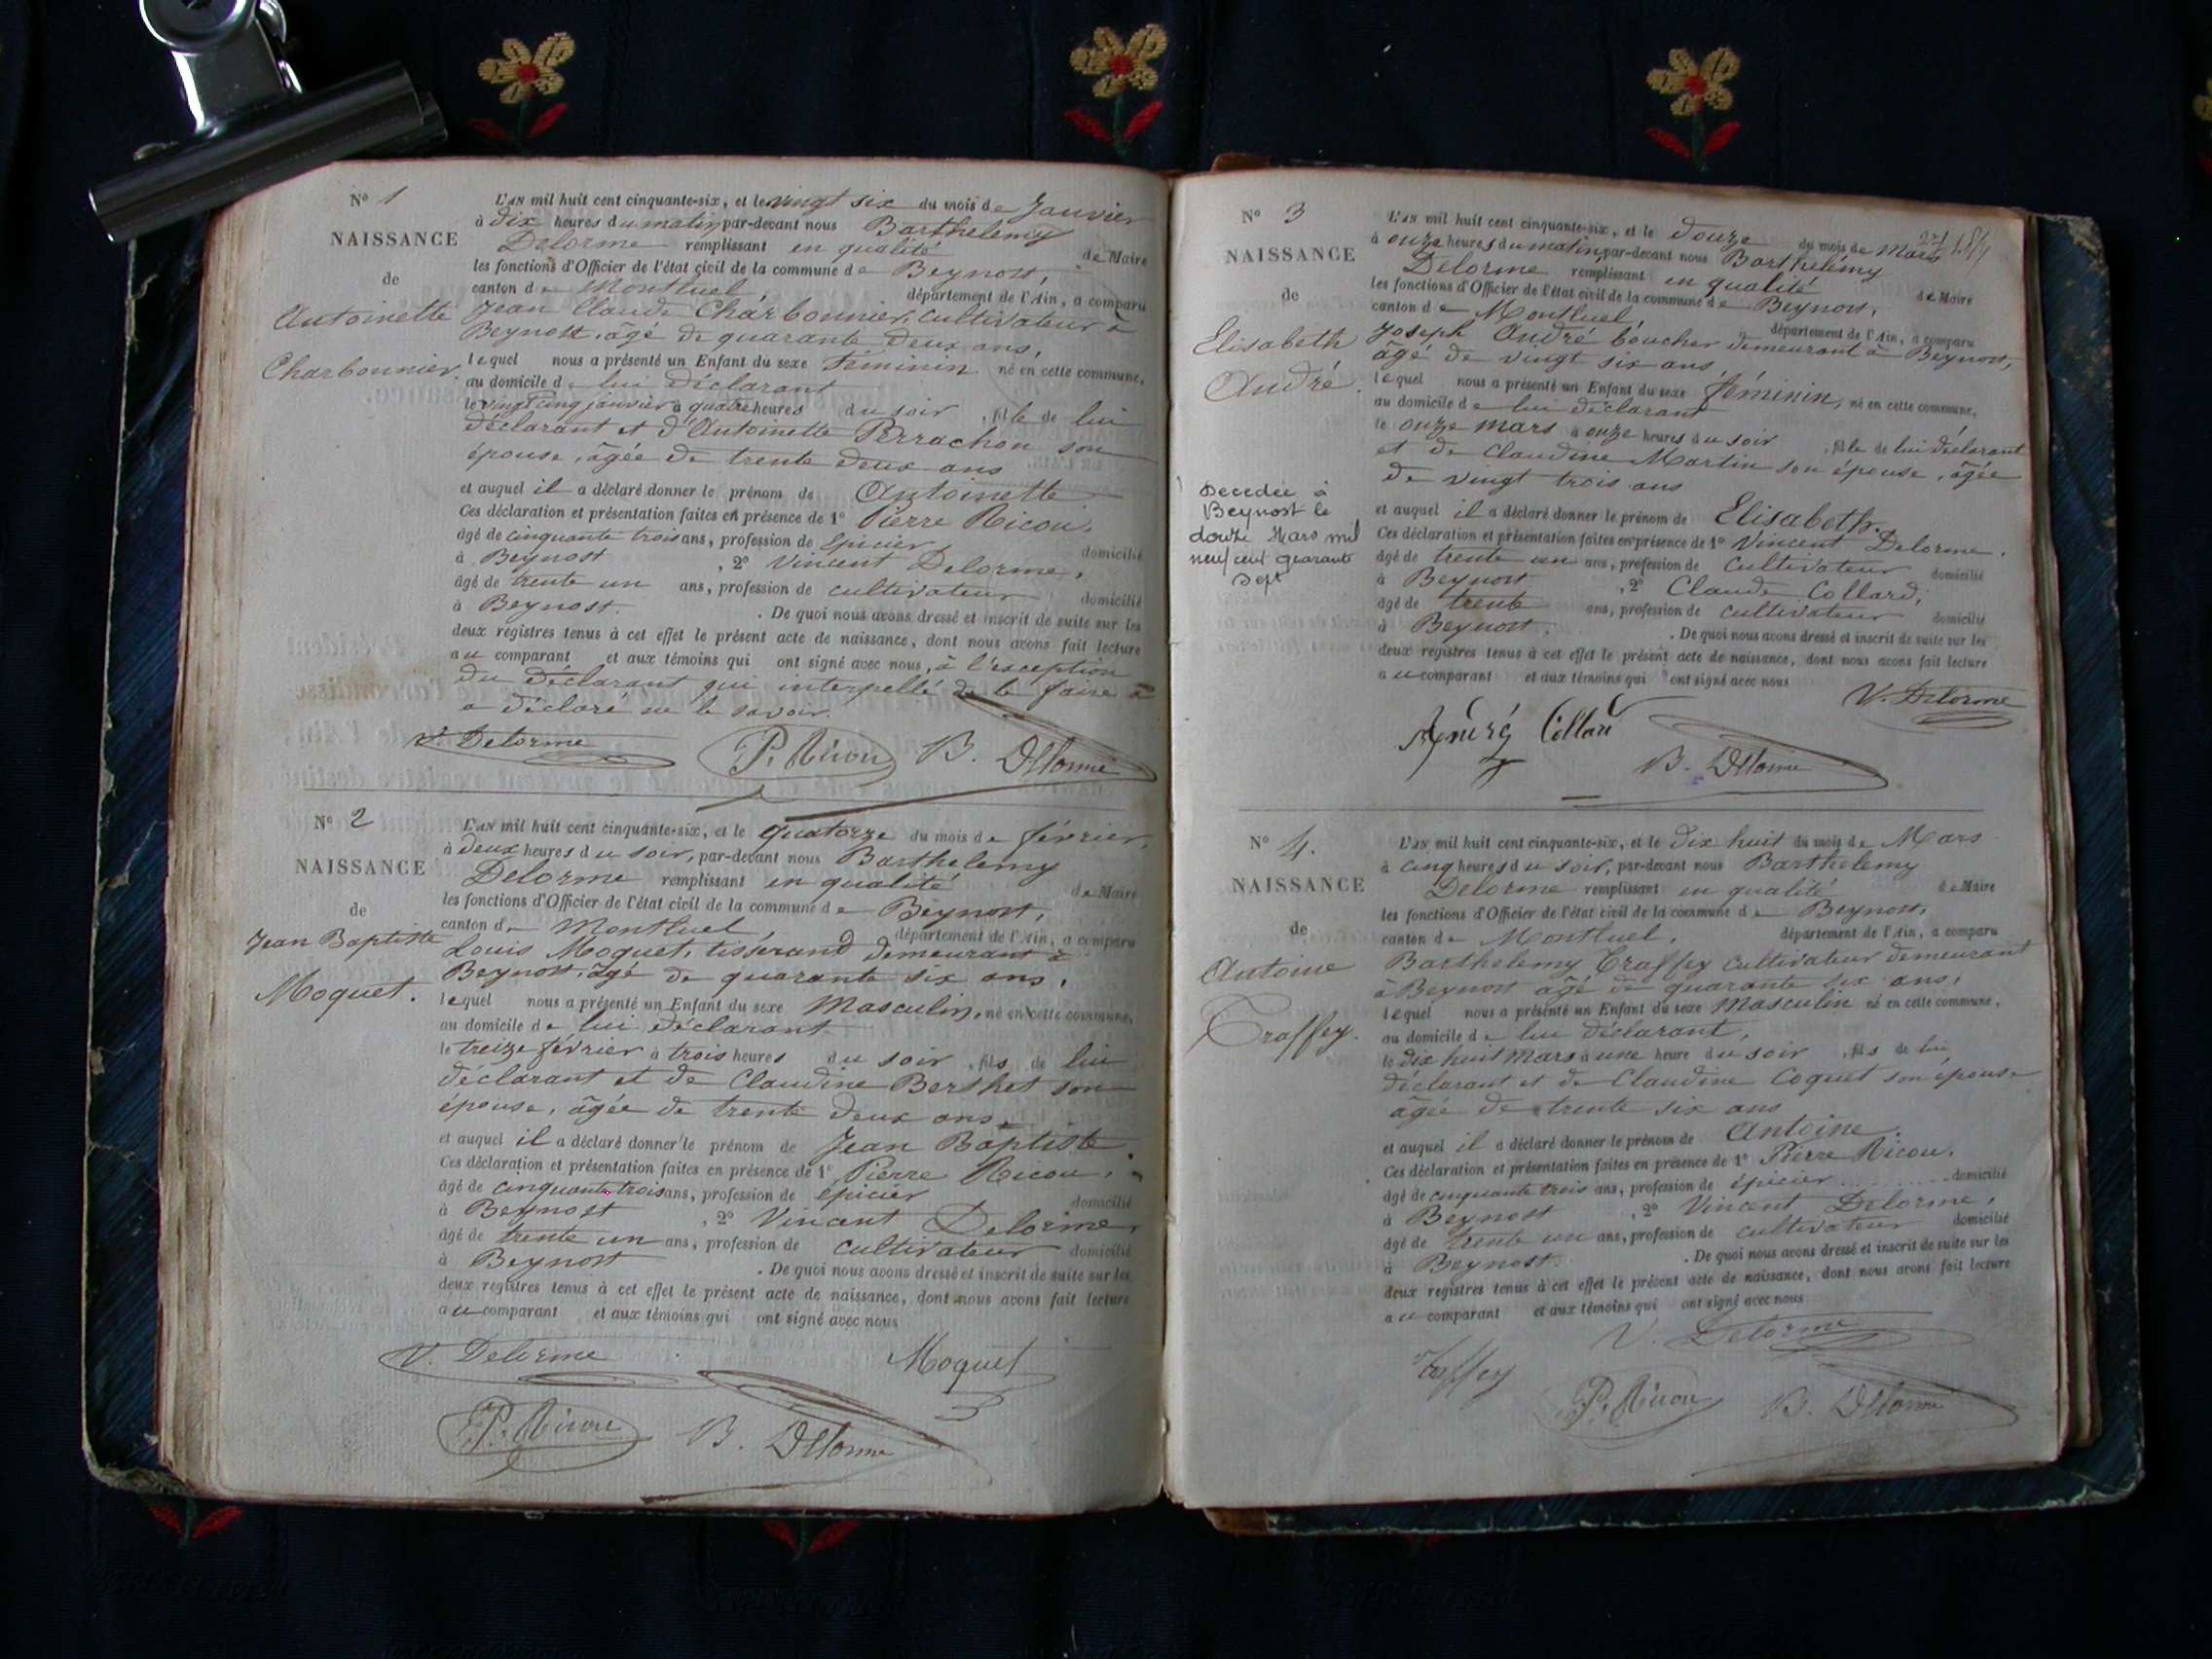 N° 1
NAISSANCE
de
Antoinette
Charbonnier.
L'AN mil huit cent cinquante-six, et le vingt six du mois de Janvier
à dix heures du matin par-devant nous Barthelemy
Delorme remplissant en qualité de Maire
les fonctions d'Officier de l'état civil de la commune de Beynost,
canton de Montluel, département de l'Ain, a comparu
Jean Claude Charbonnier, cultivateur à
Beynost, âgé de quarante deux ans,
lequel nous a présenté un Enfant du sexe Féminin né en cette commune,
au domicile de lui déclarant
le vingt cinq janvier à quatre heures du soir, fille de lui
déclarant et d'Antoinette Perrachon son
épouse, âgée de trente deux ans
et auquel il a déclaré donner le prénom de Antoinette
Ces déclaration et présentation faites en présence de 1° Pierre Ricou,
âgé de cinquante trois ans, profession de épicier domicilié
à Beynost, 2° Vincent Delorme,
âgé de trente un ans, profession de cultivateur domicilié
à Beynost. De quoi nous avons dressé et inscrit de suite sur les
deux registres tenus à cet effet le présent acte de naissance, dont nous avons fait lecture
au comparant et aux témoins qui ont signé avec nous, à l'exception
du déclarant qui interpellé de le faire
a déclaré ne le savoir.
V. Delorme P. Ricou B. Delorme
N° 2
NAISSANCE
de
Jean Baptiste
Moquet.
L'AN mil huit cent cinquante-six, et le quatorze du mois de février,
à deux heures du soir, par-devant nous Barthelemy
Delorme remplissant en qualité de Maire
les fonctions d'Officier de l'état civil de la commune de Beynost,
canton de Montluel, département de l'Ain, a comparu
Louis Moquet, tisserand demeurant à
Beynost, âgé de quarante six ans,
lequel nous a présenté un Enfant du sexe Masculin, né en cette commune,
au domicile de lui déclarant
le treize février à trois heures du soir, fils de lui
déclarant et de Claudine Berthet son
épouse, âgée de trente deux ans,
et auquel il a déclaré donner le prénom de Jean Baptiste.
Ces déclaration et présentation faites en présence de 1° Pierre Ricou,
âgé de cinquante trois ans, profession de épicier domicilié
à Beynost, 2° Vincent Delorme,
âgé de trente un ans, profession de cultivateur domicilié
à Beynost. De quoi nous avons dressé et inscrit de suite sur les
deux registres tenus à cet effet le présent acte de naissance, dont nous avons fait lecture
au comparant et aux témoins qui ont signé avec nous
V. Delorme Moquet
P. Ricou B. Delorme
N° 3
NAISSANCE
de
Elisabeth
André.
Decedée à
Beynost le
douze Mars mil
neuf cent quarante
Sept
L'AN mil huit cent cinquante-six, et le douze du mois de Mars
à onze heures du matin, par-devant nous Barthélémy
Delorme remplissant en qualité de Maire
les fonctions d'Officier de l'état civil de la commune de Beynost,
canton de Montluel, département de l'Ain, a comparu
Joseph André boucher demeurant à Beynost,
âgé de vingt six ans,
lequel nous a présenté un Enfant du sexe féminin, né en cette commune,
au domicile de lui déclarant
le onze mars à onze heures du soir, fille de lui déclarant
et de Claudine Martin son épouse, âgée
de vingt trois ans
et auquel il a déclaré donner le prénom de Elisabeth.
Ces déclaration et présentation faites en présence de 1° Vincent Delorme,
âgé de trente un ans, profession de cultivateur domicilié
à Beynost, 2° Claude Collard,
âgé de trente ans, profession de cultivateur domicilié
à Beynost. De quoi nous avons dressé et inscrit de suite sur les
deux registres tenus à cet effet le présent acte de naissance, dont nous avons fait lecture
au comparant et aux témoins qui ont signé avec nous
V. Delorme
André Collard
B. Delorme
N° 4.
NAISSANCE
de
Antoine
Traffey.
L'AN mil huit cent cinquante-six, et le dix huit du mois de Mars
à cinq heures du soir, par-devant nous Barthelemy
Delorme remplissant en qualité de Maire
les fonctions d'Officier de l'état civil de la commune de Beynost,
canton de Montluel, département de l'Ain, a comparu
Barthelemy Traffey cultivateur demeurant
à Beynost âgé de quarante six ans,
lequel nous a présenté un Enfant du sexe Masculin né en cette commune,
au domicile de lui déclarant,
le dix huit Mars à une heure du soir, fils de lui
déclarant et de Claudine Coquet son épouse
âgée de trente six ans
et auquel il a déclaré donner le prénom de Antoine.
Ces déclaration et présentation faites en présence de 1° Pierre Ricou,
âgé de cinquante trois ans, profession de épicier domicilié
à Beynost, 2° Vincent Delorme,
âgé de trente un ans, profession de cultivateur domicilié
à Beynost. De quoi nous avons dressé et inscrit de suite sur les
deux registres tenus à cet effet le présent acte de naissance, dont nous avons fait lecture
au comparant et aux témoins qui ont signé avec nous
V. Delorme
Traffey P. Ricou B. Delorme